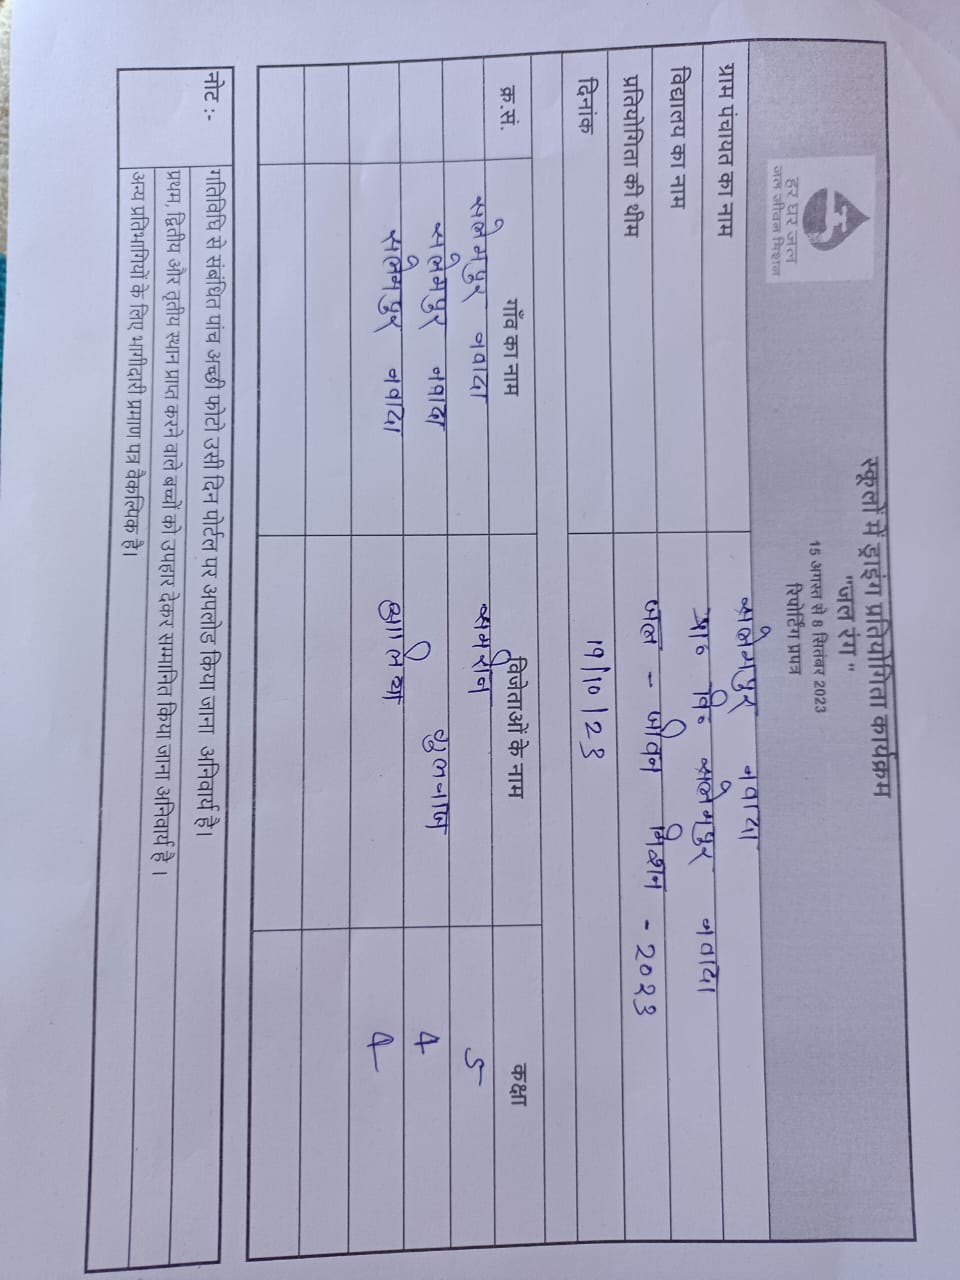 स्कूलों में ड्राइंग प्रतियोगिता कार्यक्रम
"जल रंग "
15 अगस्त से 8 सितंबर 2023
रिपोर्टिंग प्रपत्र
हर घर जल
जल जीवन मिशन
ग्राम पंचायत का नाम सलेमपुर नवादा
विद्यालय का नाम प्रा० वि० सलेमपुर नवादा
प्रतियोगिता की थीम जल - जीवन मिशन - 2023
दिनांक 19/10/23
क्र.सं. गाँव का नाम विजेताओं के नाम कक्षा
सलेमपुर नवादा समरीन 5
सलेमपुर नवादा 4
सलेमपुर नवादा 4
नोट :- गतिविधि से संबंधित पांच अच्छी फोटो उसी दिन पोर्टल पर अपलोड किया जाना अनिवार्य है।
प्रथम, द्वितीय और तृतीय स्थान प्राप्त करने वाले बच्चों को उपहार देकर सम्मानित किया जाना अनिवार्य है ।
अन्य प्रतिभागियों के लिए भागीदारी प्रमाण पत्र वैकल्पिक है।